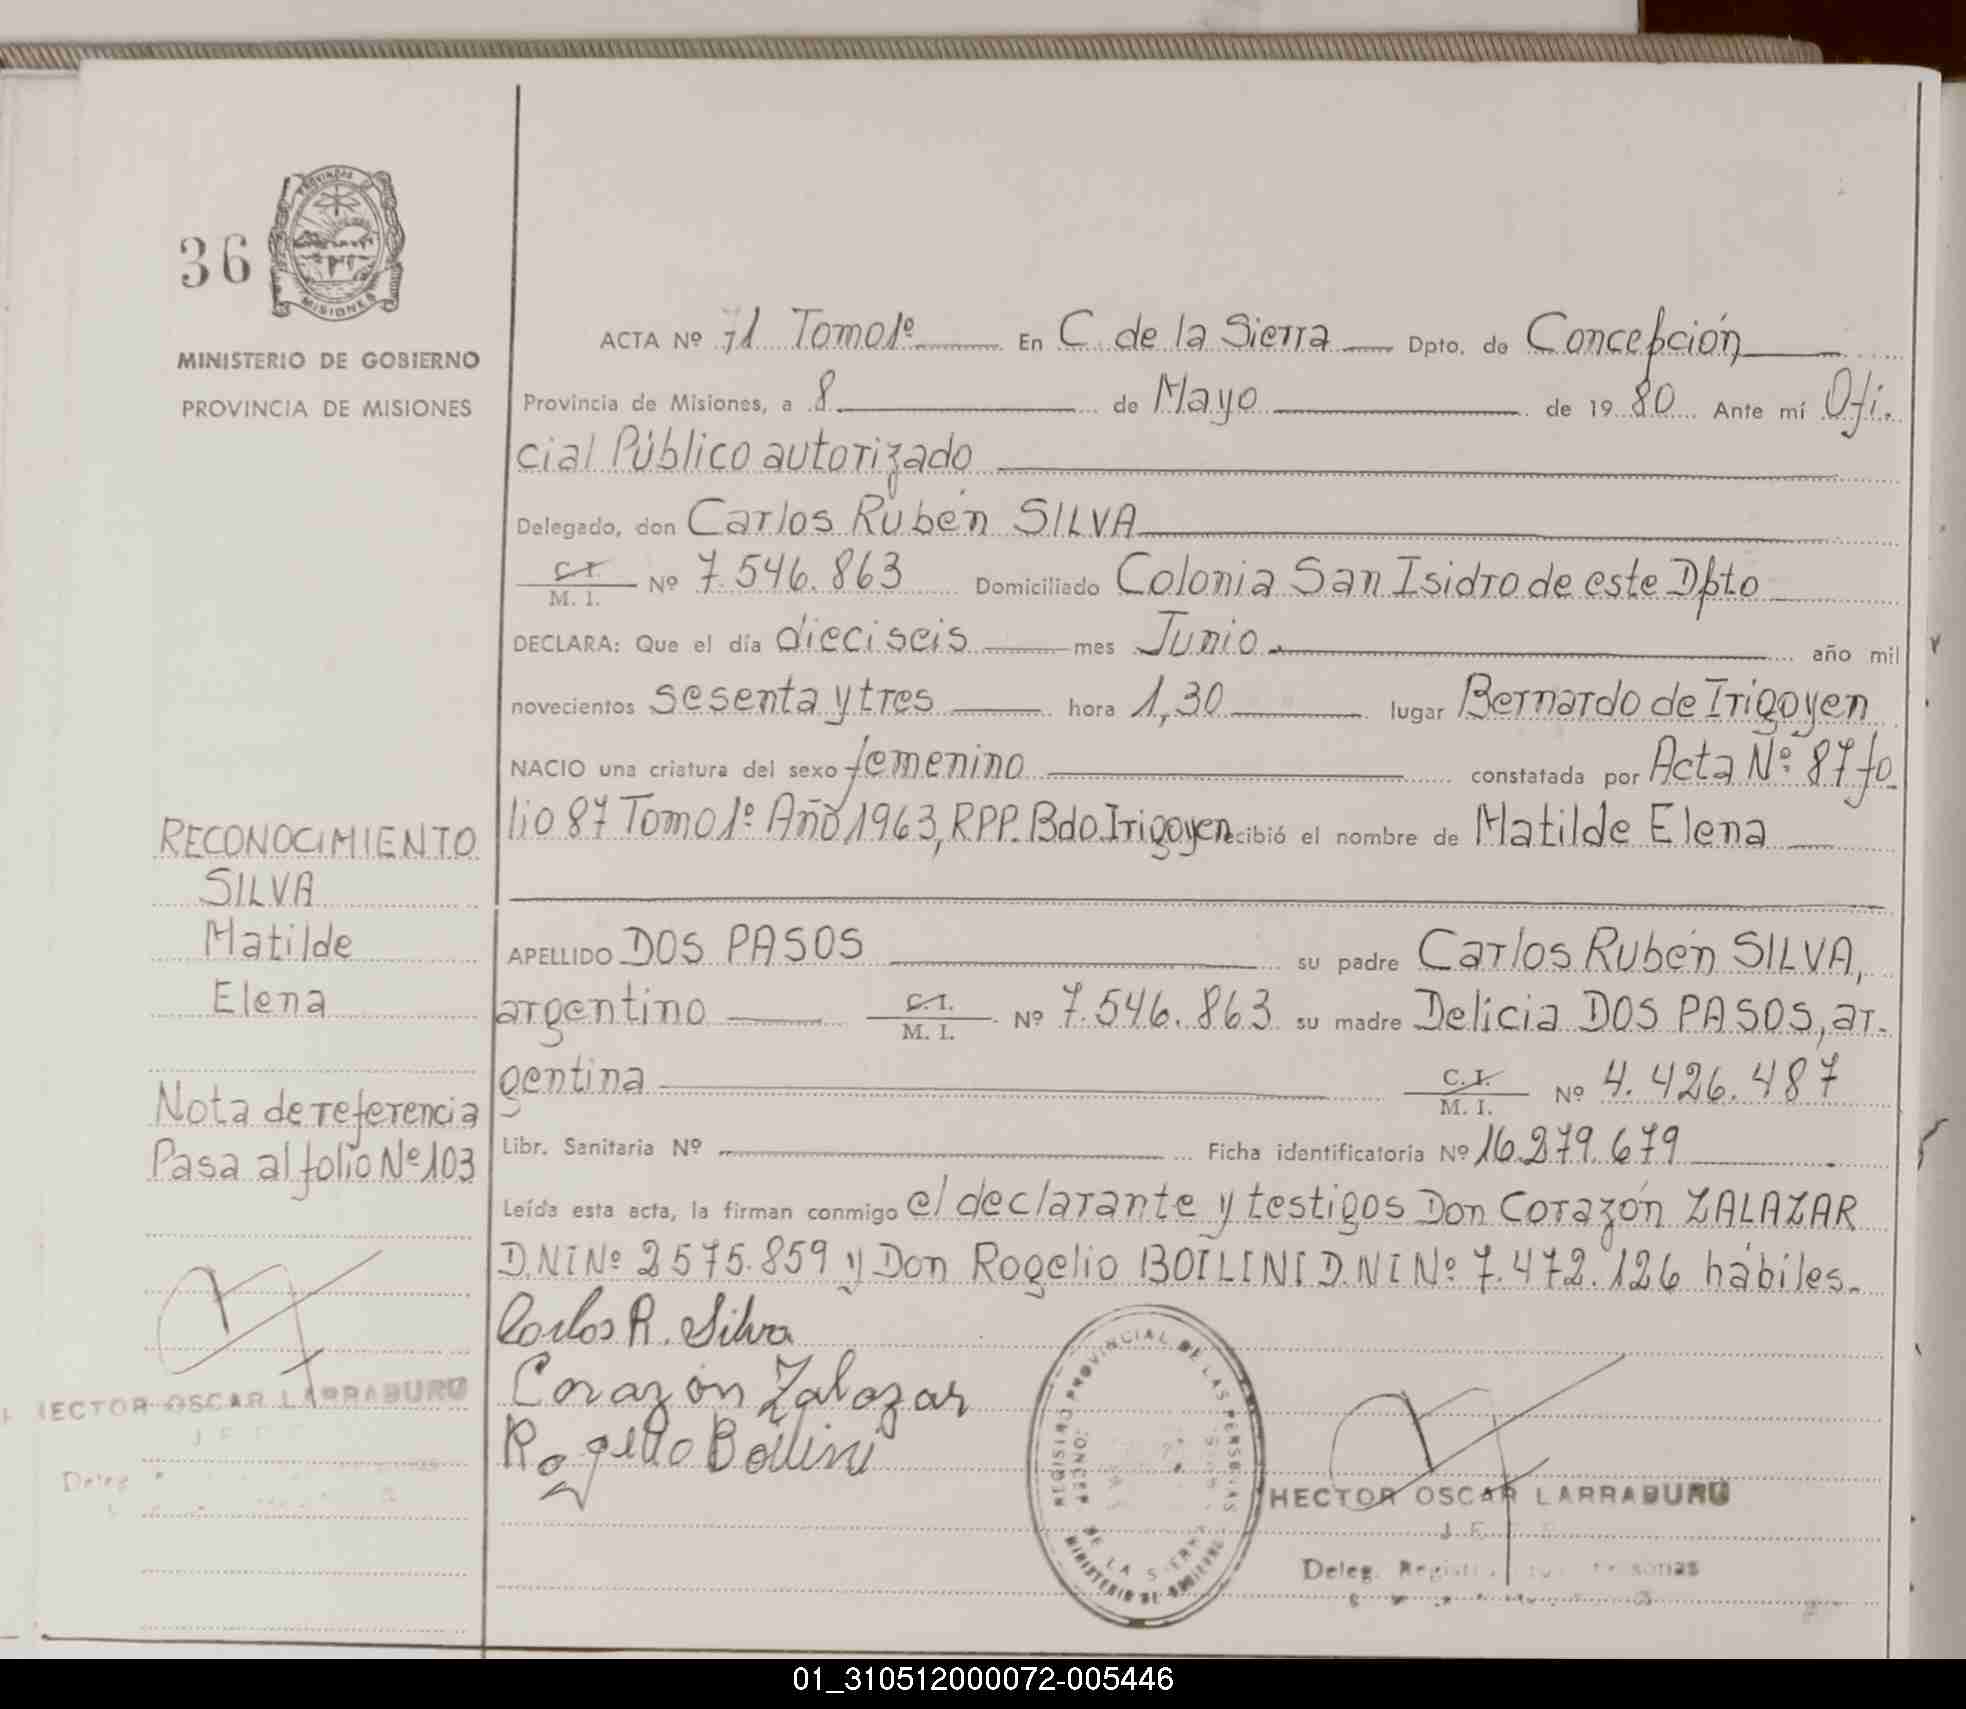 36
PROVINCIA DE
MISIONES
MINISTERIO DE GOBIERNO
PROVINCIA DE MISIONES
ACTA Nº 71 Tomo 1º En C. de la Sierra Dpto. de Concepción
Provincia de Misiones, a 8 de Mayo de 1980 Ante mí Ofi.
cial Público autorizado
Delegado, don Carlos Rubén SILVA
C. I.
M. I. Nº 7.546.863 Domiciliado Colonia San Isidro de este Dpto
DECLARA: Que el día dieciseis mes Junio año mil
novecientos sesenta y tres hora 1,30 lugar Bernardo de Irigoyen
NACIO una criatura del sexo femenino constatada por Acta Nº 87 fo
lio 87 Tomo 1º Año 1963, RPP. Bdo. Irigoyen recibió el nombre de Matilde Elena
RECONOCIMIENTO
SILVA
Matilde
Elena
APELLIDO DOS PASOS su padre Carlos Rubén SILVA,
argentino C. I. M. I. Nº 7.546.863 su madre Delicia DOS PASOS, ar-
gentina C. I. M. I. Nº 4.426.487
Nota de referencia
Pasa al folio Nº 103
Libr. Sanitaria Nº Ficha identificatoria Nº 16.279.679
Leída esta acta, la firman conmigo el declarante y testigos Don Corazón ZALAZAR
D.N.I Nº 2575.859 y Don Rogelio BOILINI D.N.I Nº 7.472.126 hábiles.
Carlos R. Silva
Corazón Zalazar
Rogelio Boilini
HECTOR OSCAR LARRABURU
JEFE
Deleg.
REGISTRO PROVINCIAL DE LAS PERSONAS
DE LA SIERRA
MINISTERIO DE GOBIERNO
HECTOR OSCAR LARRABURU
JEFE
Deleg. Personas
01_310512000072-005446